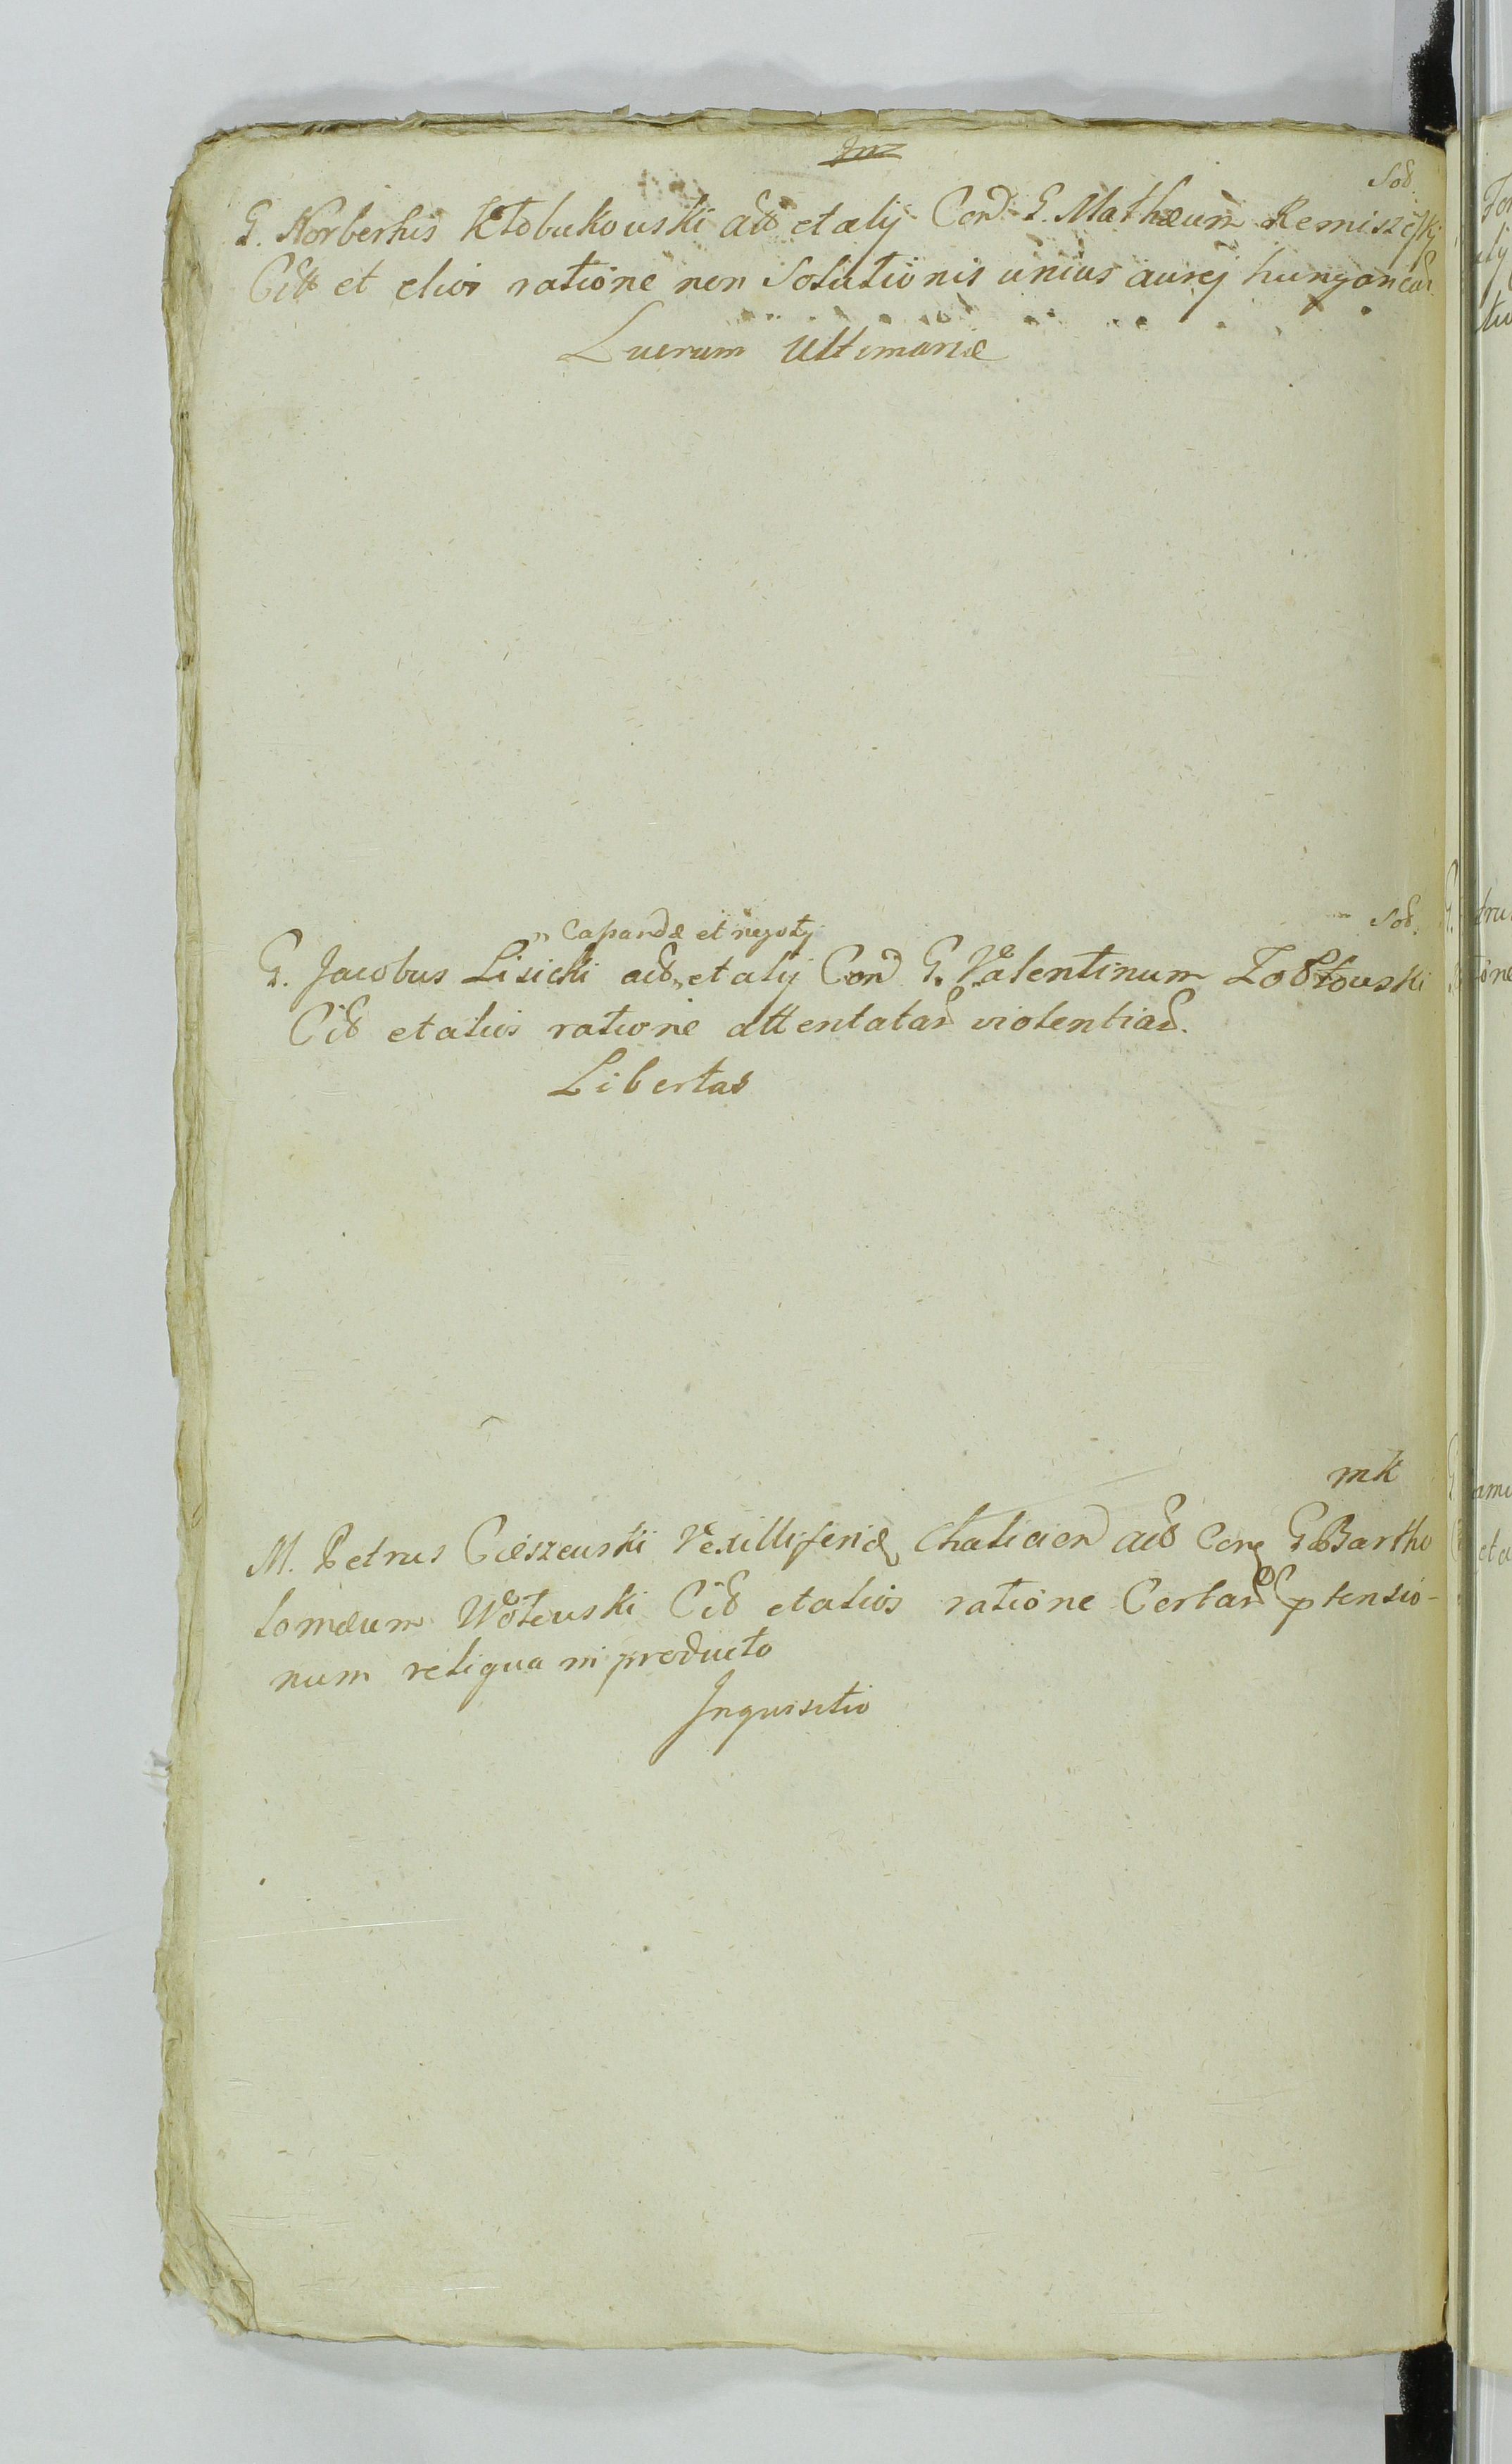 Sod.
G. Norbertus Kłobukowski actt et alij Con. G. Mathæum Remiszewskj
Citt et alios ratione non Solutionis unius aurej hungaricar.
Lucrum Ultimariæ
Sod.
Capandæ et negotij
G. Jacobus Lisicki act. et alij Con. G. Valentinum Zołtowski
Cit et alios ratione attentatar violentiar.
Libertas
mk
M. Petrus Cieszewski Vexilliferidæ Chalicien act Cong G. Bartho
lomæum Wołewski Cit et alios ratione Certar ptensio-
num reliqua in producto
Inquisitio